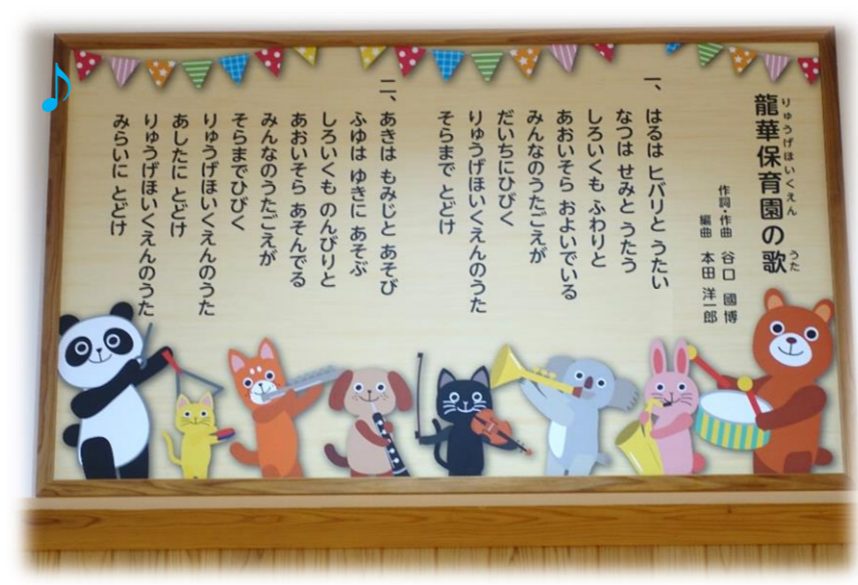 龍華保育園の歌
りゅうげほいくえん
うた
作詞・作曲 谷口 國博
編曲 本田 洋一郎
一、はるは ヒバリと うたい
なつは せみと うたう
しろいくも ふわりと
あおいそら およいでいる
みんなのうたごえが
だいちにひびく
りゅうげほいくえんのうた
そらまで とどけ
二、あきは もみじと あそび
ふゆは ゆきに あそぶ
しろいくも のんびりと
あおいそら あそんでる
みんなのうたごえが
そらまでひびく
りゅうげほいくえんのうた
あしたに とどけ
りゅうげほいくえんのうた
みらいに とどけ